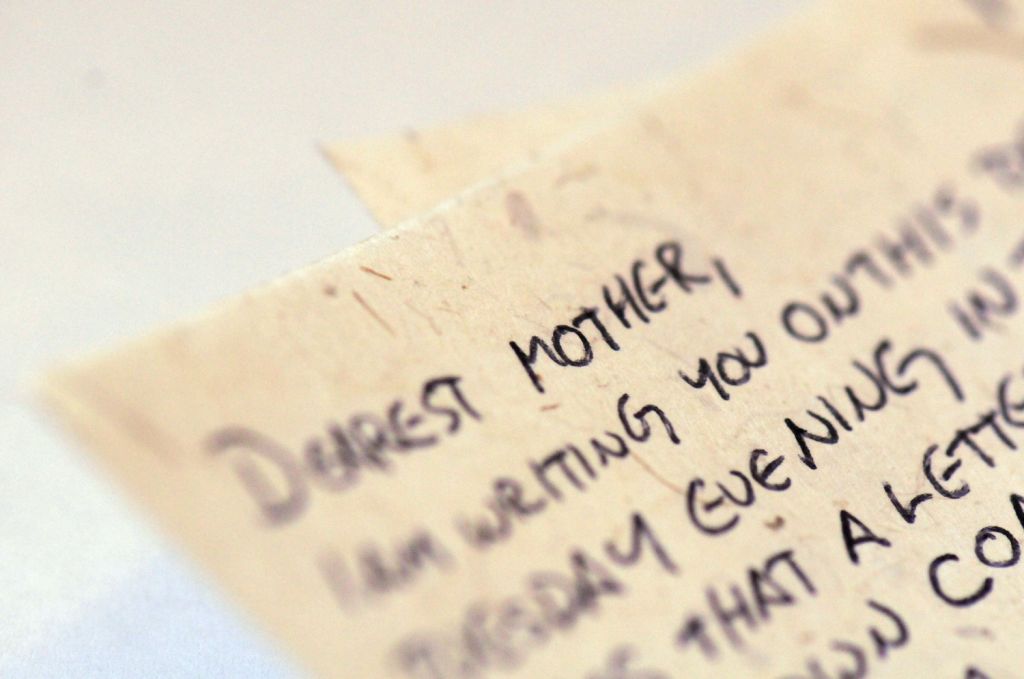 DEAREST MOTHER,
I AM WRITING YOU ON THIS
TUESDAY EVENING IN
THAT A LETTE
OWN CO